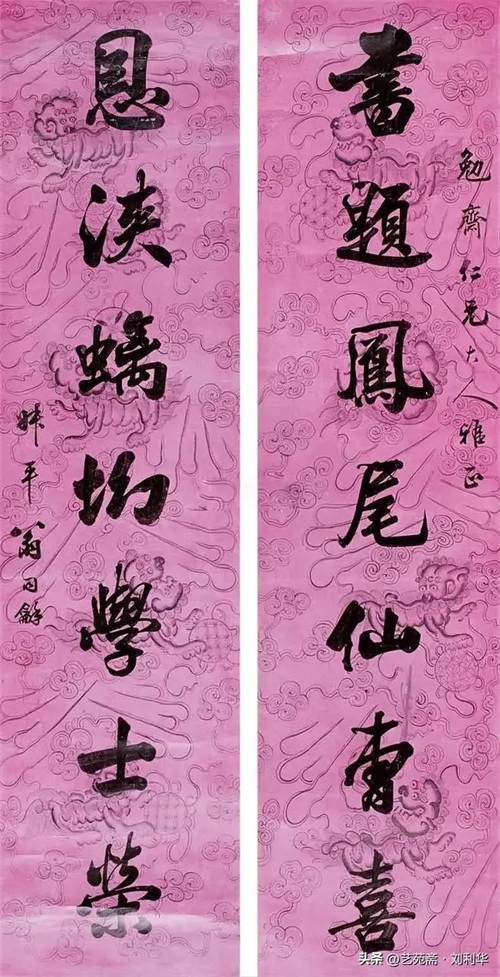 勉齋仁兄大人雅正
書題鳳尾仙曹喜
恩浹螭坳學士榮
叔平翁同龢
头条 @艺苑斋·刘利华